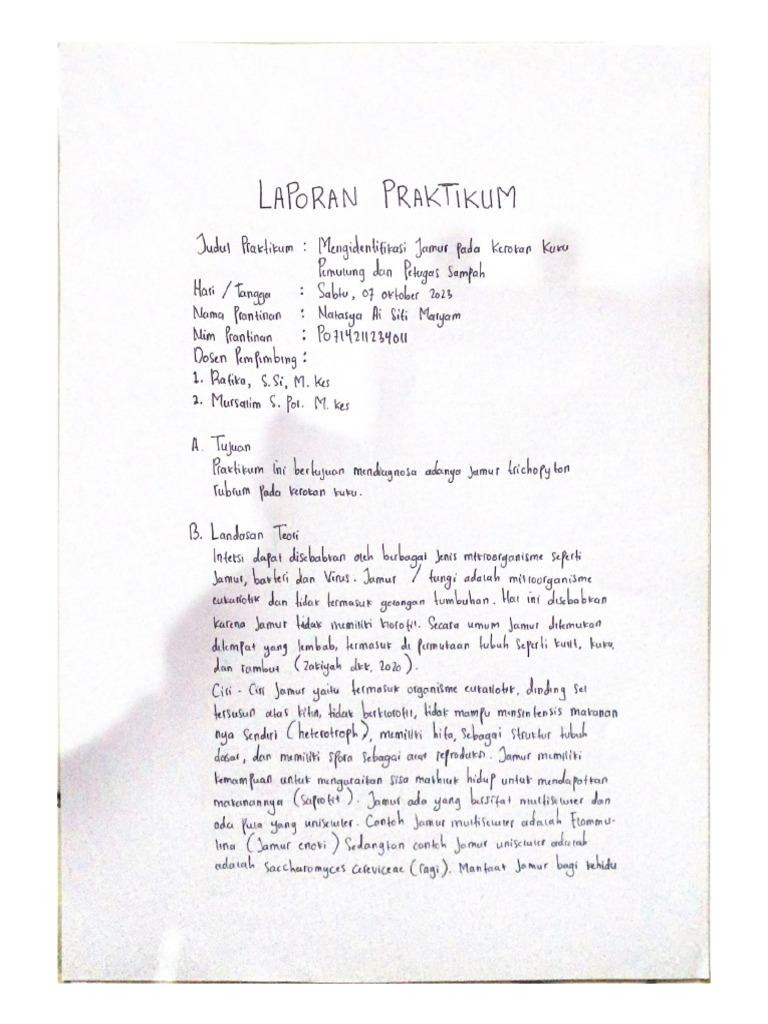 LAPORAN PRAKTIKUM
Judul Praktikum : Mengidentifikasi Jamur pada Kerokan Kuku
Pemulung dan Petugas Sampah
Hari / Tangga : Sabtu, 07 oktober 2023
Nama Prantinan : Natasya Ai Siti Maryam
Nim Prantinan : PO714211234011
Dosen Pempimbing :
1. Rafika, S.Si, M. Kes
2. Mursalim S. Pol. M. kes
A. Tujuan
Praktikum ini bertujuan mendiagnosa adanya jamur trichopyton
rubrum pada kerokan kuku.
B. Landasan Teori
Infeksi dapat disebabkan oleh berbagai jenis mikroorganisme seperti
Jamur, bakteri dan Virus. Jamur / fungi adalah mikroorganisme
eukariotik dan tidak termasuk golongan tumbuhan. Hal ini disebabkan
karena jamur tidak memiliki klorofil. Secara umum jamur ditemukan
ditempat yang lembab, termasuk di permukaan tubuh seperti kulit, kuku,
dan rambut (Zakiyah dkk, 2020).
Ciri - Ciri Jamur yaitu termasuk organisme eukariotik, dinding sel
tersusun atas kitin, tidak berklorofil, tidak mampu minsintensis makanan
nya sendiri (heterotroph), memiliki hifa, sebagai struktur tubuh
dasar, dan memiliki spora sebagai alat reproduksi. Jamur memiliki
kemampuan untuk menguraikan sisa makhluk hidup untuk mendapatkan
makanannya (saprofit). Jamur ada yang bersifat multiseluler dan
ada pula yang uniseluler. Contoh jamur multiseluler adalah Flammu-
lina (jamur enoki) Sedangkan contoh jamur uniseluler adalah
adalah Saccharomyces cereviceae (ragi). Manfaat jamur bagi kehidu